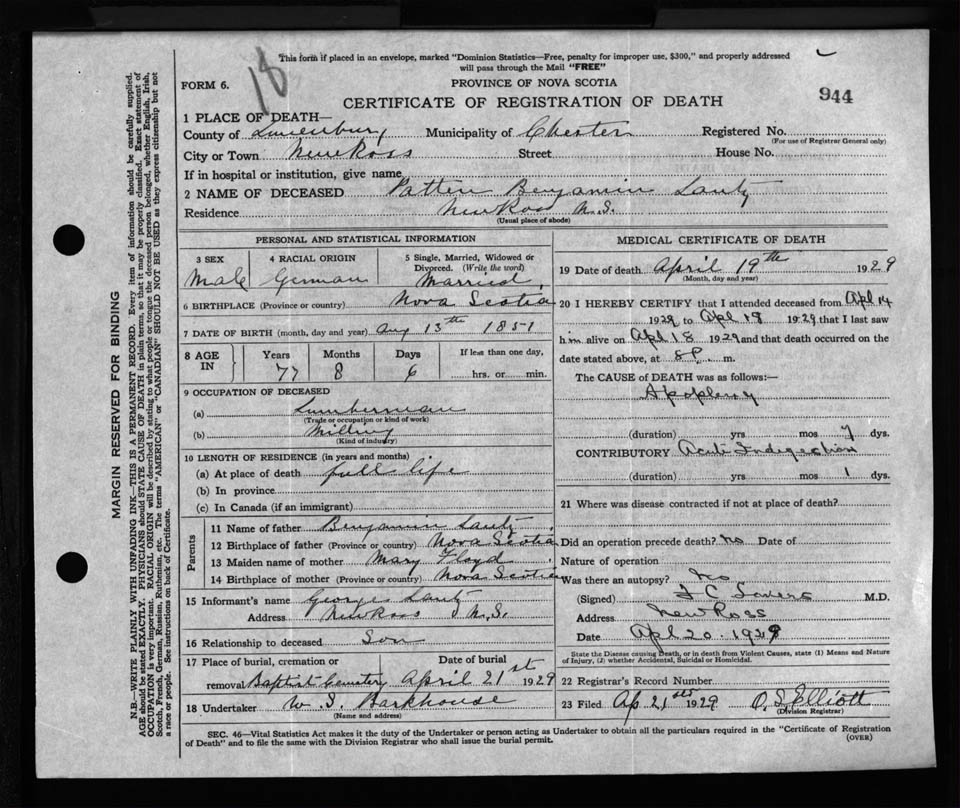 This form if placed in an envelope, marked "Dominion Statistics—Free, penalty for improper use, $300," and properly addressed
will pass through the Mail "FREE"
18
FORM 6.
PROVINCE OF NOVA SCOTIA
944
CERTIFICATE OF REGISTRATION OF DEATH
1 PLACE OF DEATH—
County of Lunenburg Municipality of Chester Registered No.
(For use of Registrar General only)
City or Town New Ross Street House No.
If in hospital or institution, give name
2 NAME OF DECEASED Benjamin Lantz
Residence New Ross N.S.
(Usual place of abode)
PERSONAL AND STATISTICAL INFORMATION
3 SEX 4 RACIAL ORIGIN 5 Single, Married, Widowed or
Divorced. (Write the word)
Male German Married
6 BIRTHPLACE (Province or country) Nova Scotia
7 DATE OF BIRTH (month, day and year) Aug 13th 1851
8 AGE IN Years Months Days If less than one day,
77 8 6 hrs. or min.
9 OCCUPATION OF DECEASED
(a) Lumberman
(Trade or occupation or kind of work)
(b) Milling
(Kind of industry)
10 LENGTH OF RESIDENCE (in years and months)
(a) At place of death full life
(b) In province
(c) In Canada (if an immigrant)
Parents
11 Name of father Benjamin Lantz
12 Birthplace of father (Province or country) Nova Scotia
13 Maiden name of mother Mary Floyd
14 Birthplace of mother (Province or country) Nova Scotia
15 Informant's name George Lantz
Address New Ross N.S.
16 Relationship to deceased Son
17 Place of burial, cremation or Date of burial
removal Baptist Cemetery April 21st 1929
18 Undertaker W. S. Barkhouse
(Name and address)
MEDICAL CERTIFICATE OF DEATH
19 Date of death April 19th 1929
(Month, day and year)
20 I HEREBY CERTIFY that I attended deceased from Apl 14
1929 to Apl 18 1929 that I last saw
him alive on Apl 18 1929 and that death occurred on the
date stated above, at 8 P. m.
The CAUSE of DEATH was as follows:—
Apoplexy
(duration) yrs mos 7 dys.
CONTRIBUTORY Acute Indigestion
(duration) yrs mos 1 dys.
21 Where was disease contracted if not at place of death?
Did an operation precede death? No Date of
Nature of operation
Was there an autopsy? No
(Signed) M.D.
Address New Ross
Date Apl 20. 1929
State the Disease causing Death, or in death from Violent Causes, state (1) Means and Nature
of Injury, (2) whether Accidental, Suicidal or Homicidal.
22 Registrar's Record Number
23 Filed Ap 21st 1929 O. S. Elliott
(Division Registrar)
SEC. 46—Vital Statistics Act makes it the duty of the Undertaker or person acting as Undertaker to obtain all the particulars required in the "Certificate of Registration
of Death" and to file the same with the Division Registrar who shall issue the burial permit.
(OVER)
MARGIN RESERVED FOR BINDING
N.B.—WRITE PLAINLY WITH UNFADING INK—THIS IS A PERMANENT RECORD. Every item of information should be carefully supplied.
AGE should be stated EXACTLY. PHYSICIANS should STATE CAUSE OF DEATH in plain terms, so that it may be properly classified. Exact statement of
OCCUPATION is very important. RACIAL ORIGIN will be described by stating to what people or tongue the deceased person belonged, whether English, Irish,
Scotch, French, German, Russian, Ruthenian, etc. The terms "AMERICAN" or "CANADIAN" SHOULD NOT BE USED as they express citizenship but not
a race or people. See instructions on back of Certificate.